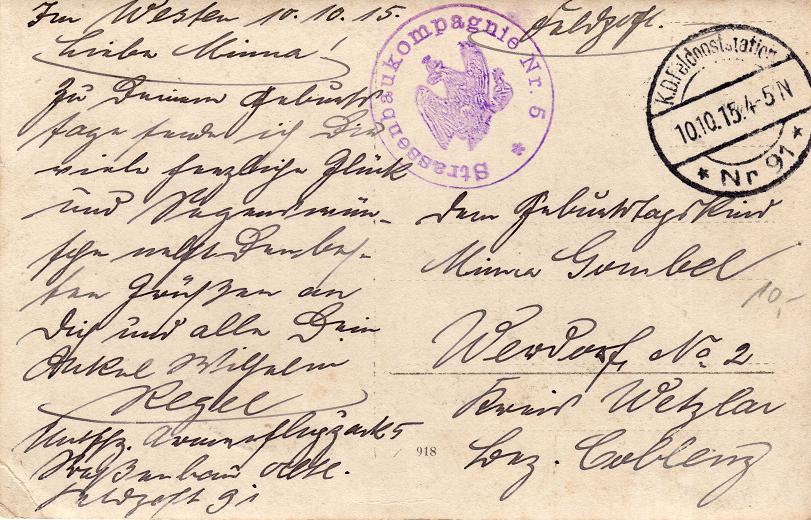 Im Westen 10.10.15.
Feldpost.
Liebe Minna!
Zu Deinem Geburts
tage sende ich Dir
viele herzliche Glück
und Segenswün-
sche nebst den bes-
ten Grüßen an
Dich und alle Dein
Onkel Wilhelm
Regel
Untffz. Armeeflugpark 5
Straßenbau
Feldpost 91
Strassenbaukompagnie Nr. 5 *
K.D. Feldpoststation
10.10.15. 4-5 N
* Nr 91 *
Dem Geburtstagskind
Minna Gombel
10,-
Werdorf, No. 2
Kreis Wetzlar
Bez. Coblenz
918